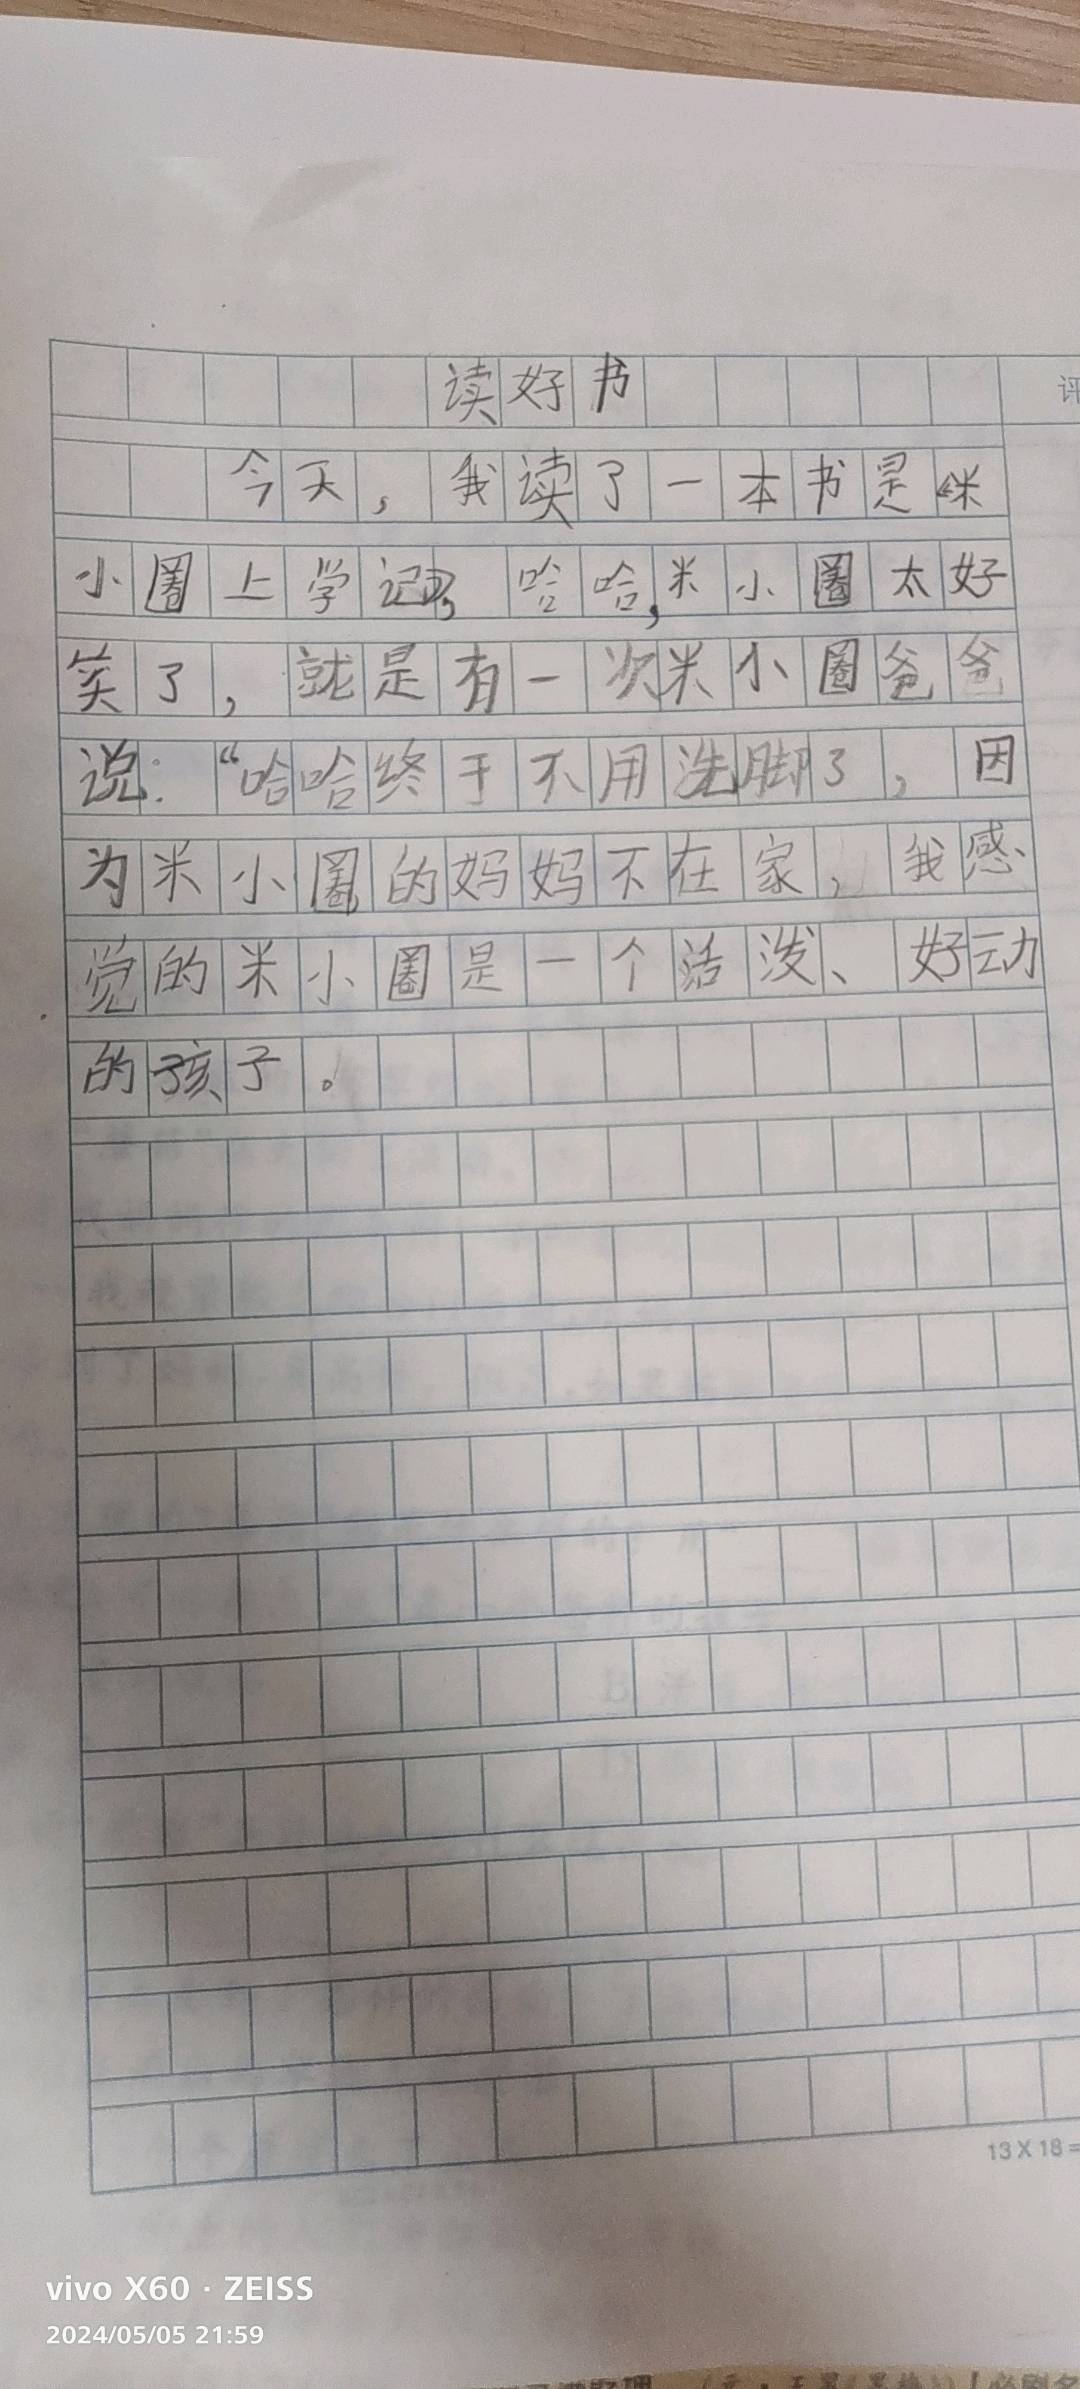 读好书
评
今天，我读了一本书是《米
小圈上学记》，哈哈，米小圈太好
笑了，就是有一次米小圈爸爸
说：“哈哈终于不用洗脚了，因
为米小圈的妈妈不在家，我感
觉的米小圈是一个活泼、好动
的孩子。
13X18=
vivo X60 · ZEISS
2024/05/05 21:59